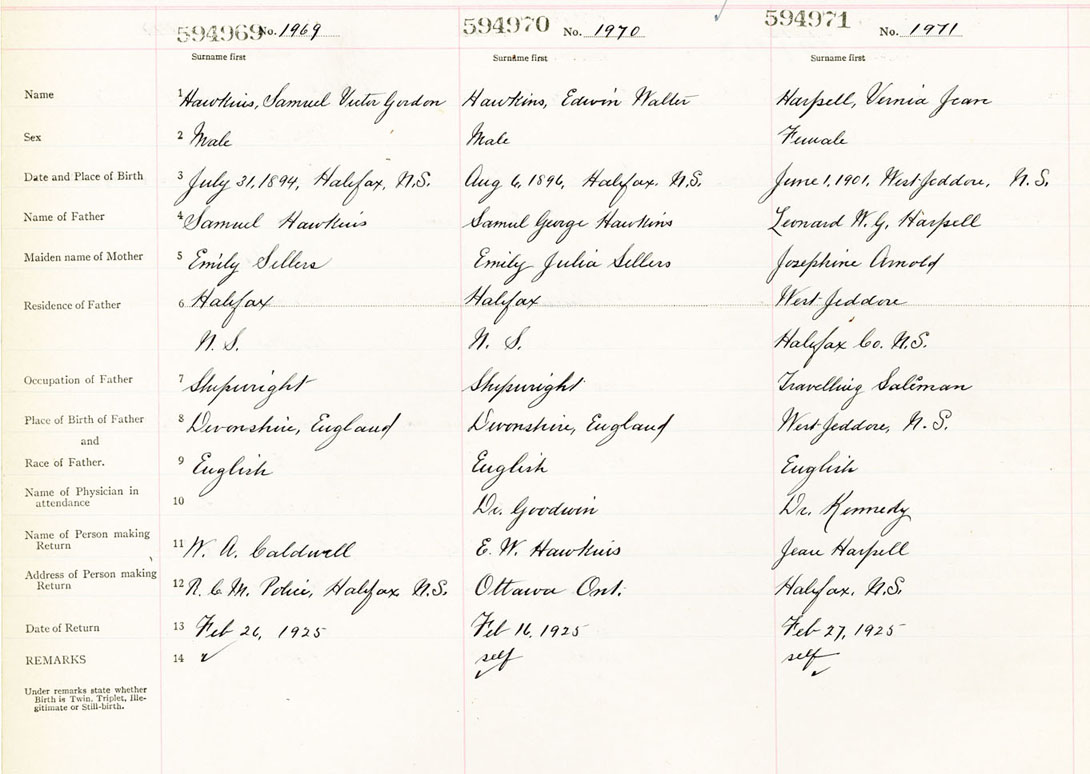 594969 No. 1969 594970 No. 1970 594971 No. 1971
Surname first Surname first Surname first
Name 1 Hawkins, Samuel Victor Gordon Hawkins, Edwin Walter Harpell, Vernia Jean
Sex 2 Male Male Female
Date and Place of Birth 3 July 31, 1894, Halifax, N.S. Aug 6, 1896, Halifax. N.S. June 1, 1901, West Jeddore, N.S.
Name of Father 4 Samuel Hawkins Samul George Hawkins Leonard W. G. Harpell
Maiden name of Mother 5 Emily Sellers Emily Julia Sellers Josephine Arnold
Residence of Father 6 Halifax Halifax West Jeddore
N. S. N. S. Halifax Co. N.S.
Occupation of Father 7 Shipwright Shipwright Travelling Salesman
Place of Birth of Father 8 Devonshire, England Devonshire, England West Jeddore, N.S.
and
Race of Father. 9 English English English
Name of Physician in
attendance 10 Dr. Goodwin Dr. Kennedy
Name of Person making
Return 11 W. A. Caldwell E. W. Hawkins Jean Harpell
Address of Person making
Return 12 R. C. M. Police, Halifax N.S. Ottawa Ont. Halifax, N.S.
Date of Return 13 Feb 26, 1925 Feb 16, 1925 Feb 27, 1925
REMARKS 14 self self
Under remarks state whether
Birth is Twin, Triplet, Ille-
gitimate or Still-birth.